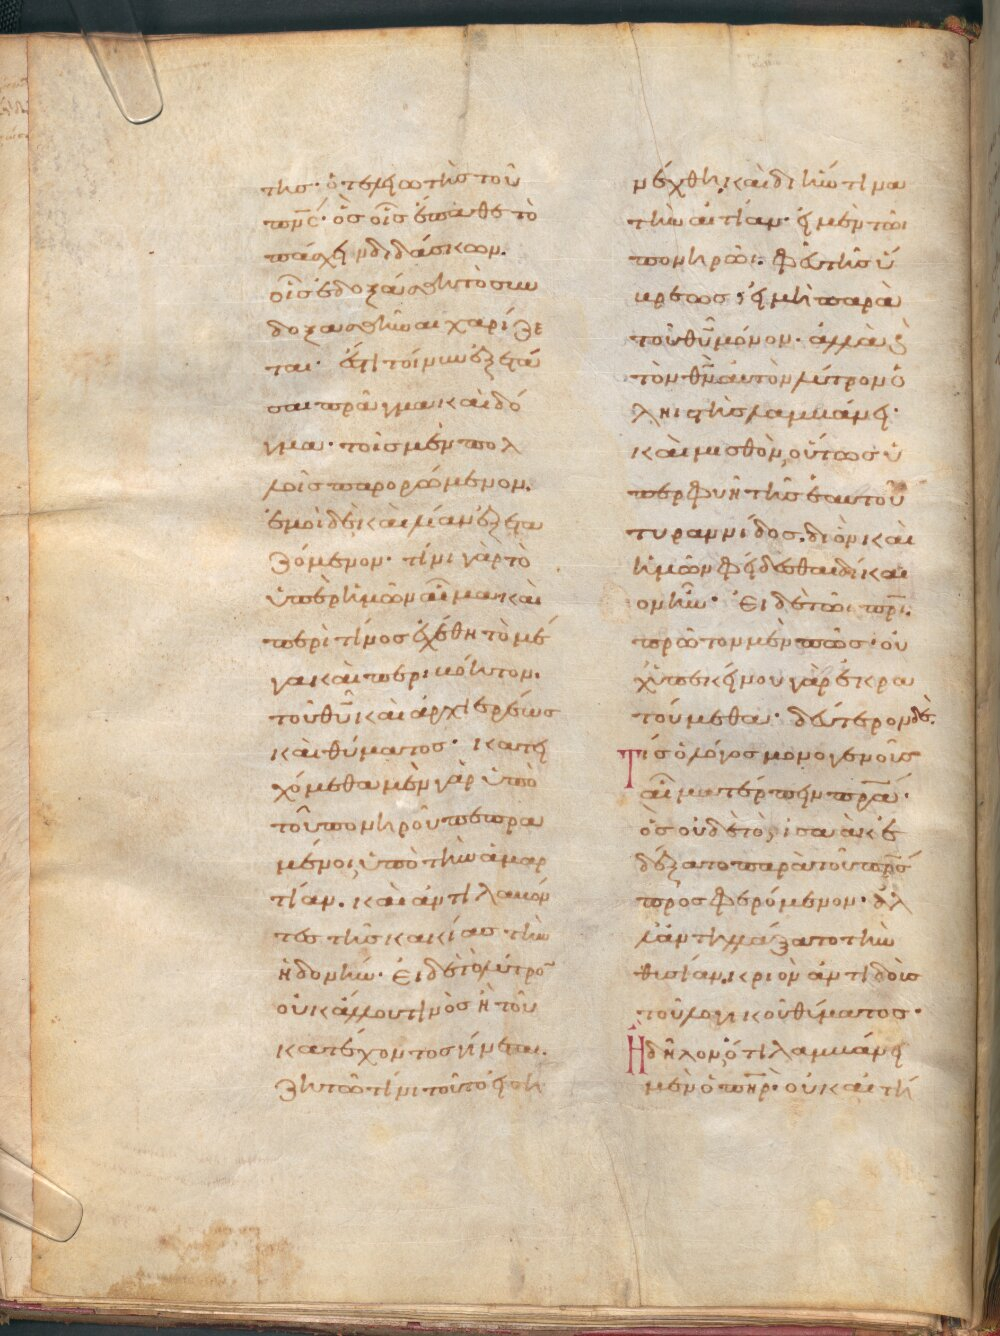 της· ὁ τελειωτὴς τοῦ
πν̅ς· ὃς οἷς ἔπαθε τὸ
πάσχειν διδάσκων.
οἷς ἐδοξάσθη τὸ συν
δοξασθῆναι χαρίζε
ται· ἔστι τοίνυν ἐξετά
σαι πρᾶγμα καὶ δό
γμα· τοῖς μὲν πολ
λοῖς παρορώμενον.
ἐμοὶ δὲ καὶ λίαν ἐξετα
ζόμενον· τίνι γὰρ τὸ
ὑπὲρ ἡμῶν αἷμα καὶ
περὶ τίνος ἐχέθη τὸ μέ
γα καὶ περιβόητον.
τοῦ θυ̅ καὶ ἀρχιερέως
καὶ θύματος· κατει
χόμεθα μὲν γὰρ ὑπὸ
τοῦ πονηροῦ πεπρα
μένοι ὑπὸ τὴν ἁμαρ
τίαν. καὶ ἀντιλαβόν
τες τῆς κακίας τὴν
ἡδονήν· εἰ δὲ τὸ λύτρο̅
οὐκ ἄλλου τινὸς ἢ τοῦ
κατέχοντος γίνεται.
ζητῶ τίνι τοῦτο εἰση
νέχθη, καὶ δι' ἥντινα
τὴν αἰτίαν· εἰ μὲν τῶι
πονηρῶι. φεῦ τῆς ὕ
βρεως· εἰ μὴ παρὰ
τοῦ θυ̅ μόνον· ἀλλὰ ϗ
τὸν θν̅ αὐτὸν λύτρον ὁ
ληιστὴς λαμβάνει·
καὶ μισθὸν οὕτως ὑ
περφυῆ τῆς ἑαυτοῦ
τυραννίδος. δι' ὃν καὶ
ἡμῶν φείδεσθαι δίκαι
ον ἦν· Εἰ δὲ τῶι πρι̅.
πρῶτον μὲν πῶς· οὐ
χ' ὑπ' ἐκείνου γὰρ ἐκρα
τούμεθα· δεύτερον δὲ.
Τίς ὁ λόγος μονογενοῦς
αἷμα τέρπειν πρα̅·
ὃς οὐδὲ τὸν ἰσαὰκ ἐ
δέξατο παρὰ τοῦ πρς̅
προσφερόμενον· ἀλ
λ' ἀντηλλάξατο τὴν
θυσίαν, κριὸν ἀντιδοὺς
τοῦ λογικοῦ θύματος·
Ἢ δῆλον ὅτι λαμβάνει
μὲν ὁ πηρ̅· οὐκ αἰτή